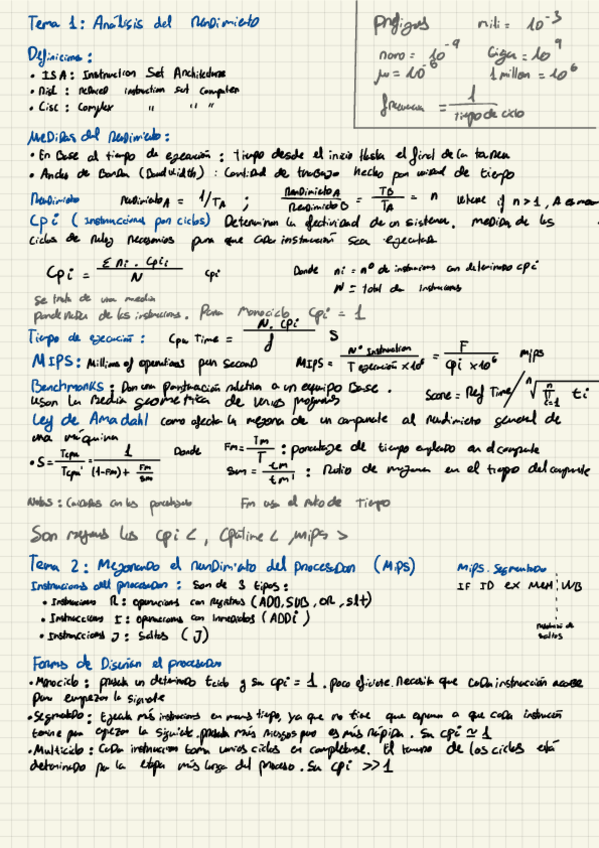 Tema 1: Análisis del Rendimiento
Prefijos mili = 10^-3
nano = 10^-9 Giga = 10^9
μ = 10^-6 1 millon = 10^6
frecuencia = 1 / tiempo de ciclo
Definiciones:
• ISA: Instruction Set Architecture
• Risc: reduced instruction set computer
• Cisc: Complex " " "
Medidas del Rendimiento:
• En Base al tiempo de ejecución: tiempo desde el inicio hasta el final de la tarea
• Ancho de Banda (Bandwidth): Cantidad de trabajo hecho por unidad de tiempo
Rendimiento Rendimiento A = 1/TA ; Rendimiento A / Rendimiento B = TB / TA = n where if n > 1, A es
Cpi (instrucciones por ciclos) Determinan la efectividad de un sistema. medida de los
ciclos de reloj necesarios para que cada instrucción sea ejecutada
Cpi = Σ ni · Cpii / N cpi Donde ni = nº de instrucciones con determinado cpi
N = total de instrucciones
Se trata de una media
ponderada de las instrucciones. Para Monociclo Cpi = 1
Tiempo de ejecución: Cpu Time = N · Cpi / f s
MIPS: Millions of operations per second MIPS = Nº Instruction / T ejecución × 10^6 = F / Cpi × 10^6 mips
Benchmarks: Dan una puntuación relativa a un equipo Base.
usan la media geométrica de varios programas Score = Ref Time / ⁿ√ n ∏ i=1 ti
Ley de Amadahl como afecta la mejora de un componente al rendimiento general de
una máquina
• S = Tcpu / Tcpu' = 1 / (1-Fm) + Fm/Sm Donde Fm = Tm / T : porcentaje de tiempo empleado en el componente
Sm = tm / tm' : Ratio de mejora en el tiempo del componente
Notas: Cuidado con los porcentajes Fm usa el ratio de Tiempo
Son mejores los Cpi <, Cputime <, mips >
Tema 2: Mejorando el rendimiento del procesador (Mips)
Mips. Segmentado
Instrucciones del procesador: Son de 3 tipos:
IF ID EX MEM WB
• Instrucciones R: operaciones con registros (ADD, SUB, OR, slt)
• Instrucciones I: operaciones con inmediatos (ADDi)
• Instrucciones J: Saltos (J)
saltos
Formas de Diseñar el procesador
• Monociclo: presenta un determinado tciclo y su cpi = 1. poco eficiente. Necesita que cada instrucción acabe
para empezar la siguiente
• Segmentado: Ejecuta más instrucciones en menos tiempo, ya que no tiene que esperar a que cada instrucción
termine para empezar la siguiente. presenta más riesgos pero es más rápida. Su cpi ≃ 1
• Multiciclo: Cada instrucción toma varios ciclos en completarse. El tamaño de los ciclos está
determinado por la etapa más larga del proceso. Su cpi >> 1